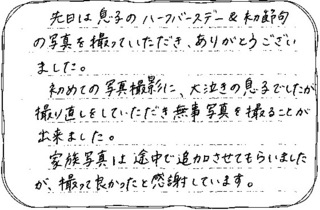 先日は息子のハーフバースデー&初節句
の写真を撮っていただき、ありがとうござい
ました。
初めての写真撮影に、大泣きの息子でしたが
撮り直しをしていただき無事写真を撮ることが
出来ました。
家族写真は途中で追加させてもらいました
が、撮って良かったと感謝しています。